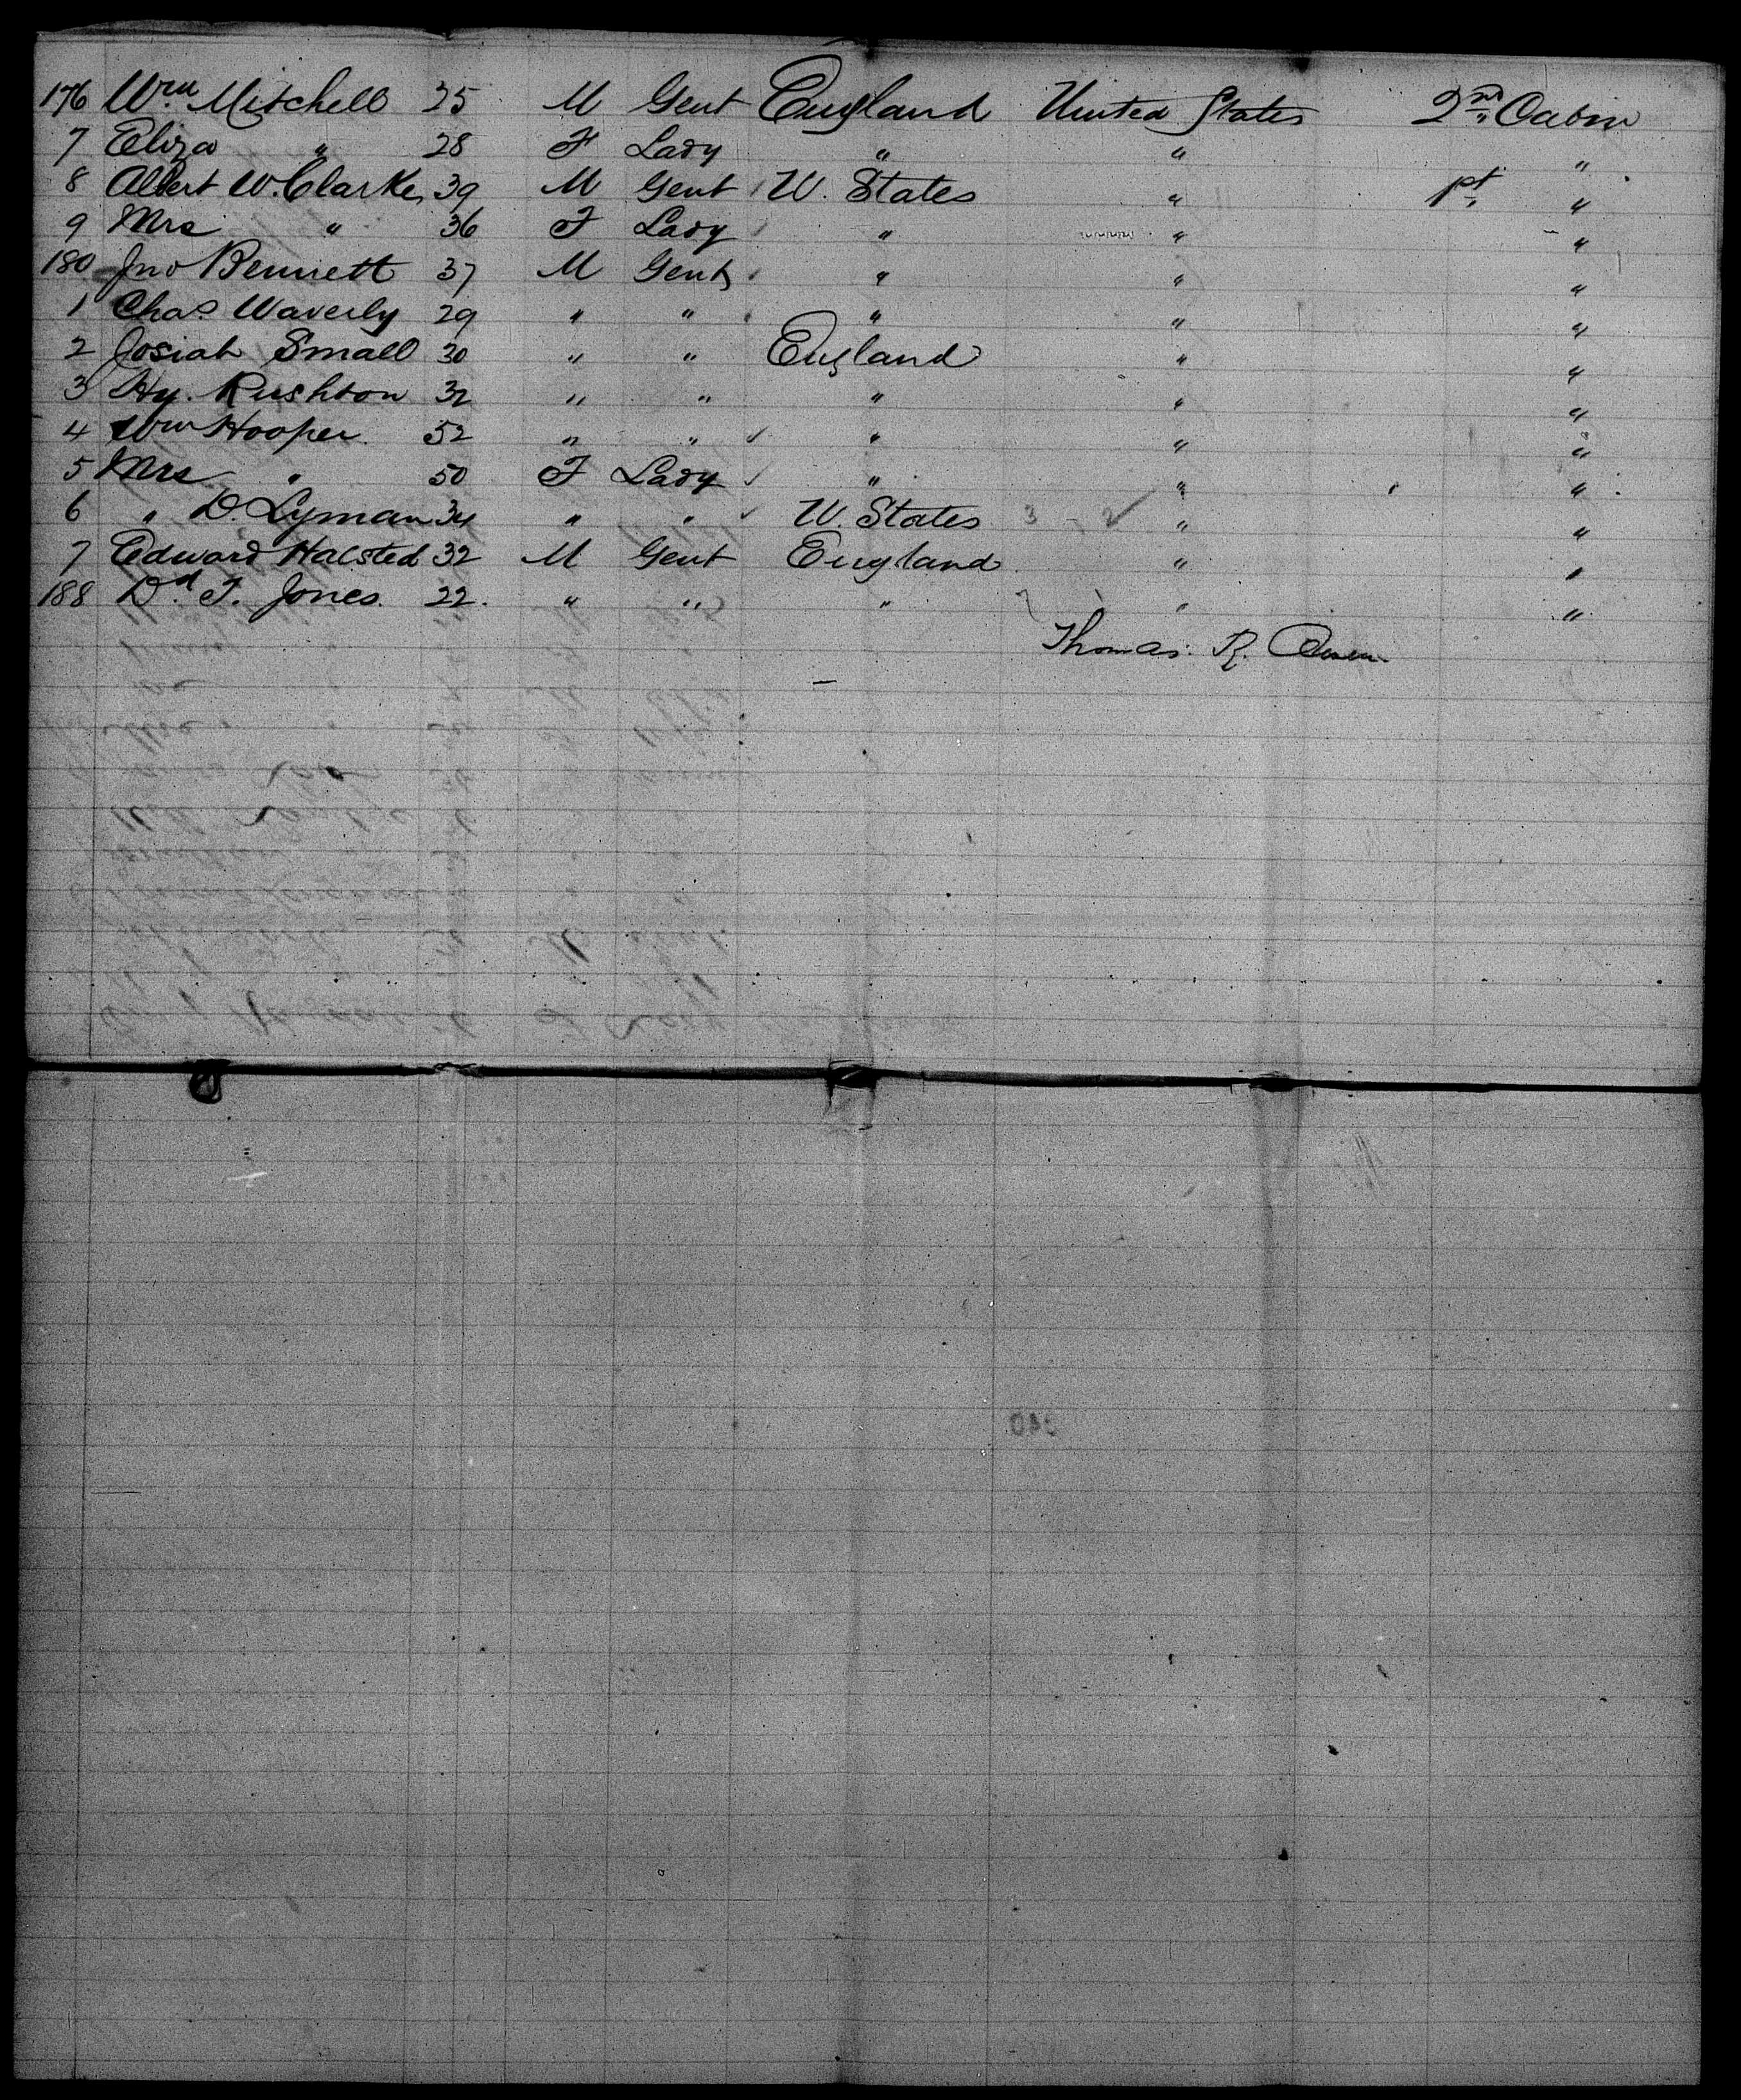 176 Wm Mitchell 25 M Gent England United States 2nd Cabin
7 Eliza " 28 F Lady " " "
8 Albert W. Clarke 39 M Gent U. States " 1st "
9 Mrs " 36 F Lady " " "
180 Jno Bennett 37 M Gent " " "
1 Chas Waverly 29 " " " " "
2 Josiah Small 30 " " England " "
3 Hy. Rushton 32 " " " " "
4 Wm Hooper 52 " " " " "
5 Mrs " 50 F Lady " " "
6 " D. Lyman 34 " " U. States " "
7 Edward Halsted 32 M Gent England " "
188 Dd. T. Jones. 22. " " " " "
Thomas. R.
340